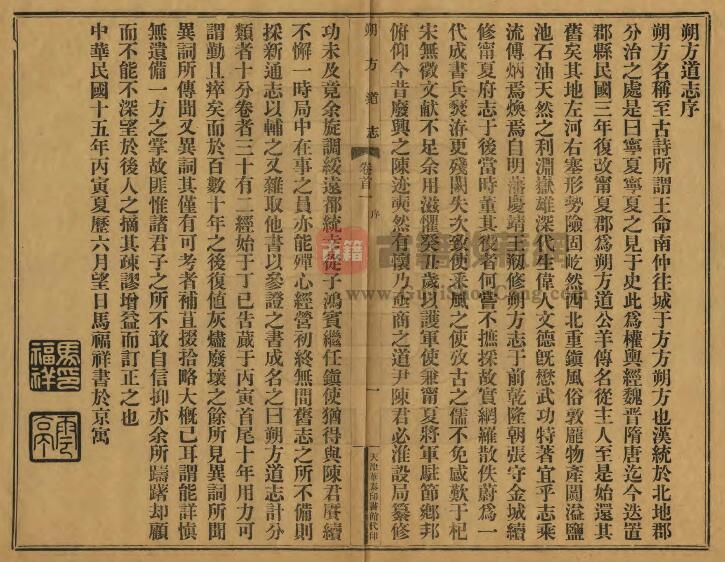 朔方道志序
朔方名稱至古詩所謂王命南仲往城于方方朔方也漢統於北地郡
分治之處是曰寧夏寧夏之見于史此為權輿經魏晉隋唐迄今迭置
郡縣民國三年復改甯夏郡為朔方道公羊傳名從主人至是始還其
舊矣其地左河右塞形勢險固屹然西北重鎮風俗敦龐物產闐溢鹽
池石油天然之利淵嶽雄深代生偉人文德旣懋武功特著宜乎志乘
流傳炳焉煥焉自明藩慶靖王䎸修朔方志于前乾隆朝張守金城續
修甯夏府志于後當時董其役者何嘗不摭採故實網羅散佚蔚為一
代成書兵燹洊更殘闕失次致使采風之使攷古之儒不免感歎于杞
宋無徵文獻不足余用滋懼癸丑歲以護軍使兼甯夏將軍駐節鄉邦
俯仰今昔廢興之陳迹奭然有懷乃亟商之道尹陳君必淮設局纂修
朔方道志
卷首一
序
一
天津華泰印書館代印
功未及竟余旋調綏遠都統去從子鴻賓繼任鎮使猶得與陳君賡續
不懈一時局中在事之員亦能殫心經營初終無間舊志之所不備則
採新通志以輔之又雜取他書以參證之書成名之曰朔方道志計分
類者十分卷者三十有二經始于丁巳告蕆于丙寅首尾十年用力可
謂勤且瘁矣而於百數十年之後復值灰燼廢壞之餘所見異詞所聞
異詞所傳聞又異詞其僅有可考者補苴掇拾略大概已耳謂能詳愼
無遺備一方之掌故匪惟諸君子之所不敢自信抑亦余所躊躇却顧
而不能不深望於後人之摘其疎謬增益而訂正之也
中華民國十五年丙寅夏歷六月望日馬福祥書於京寓
馬福祥印
雲亭
古籍